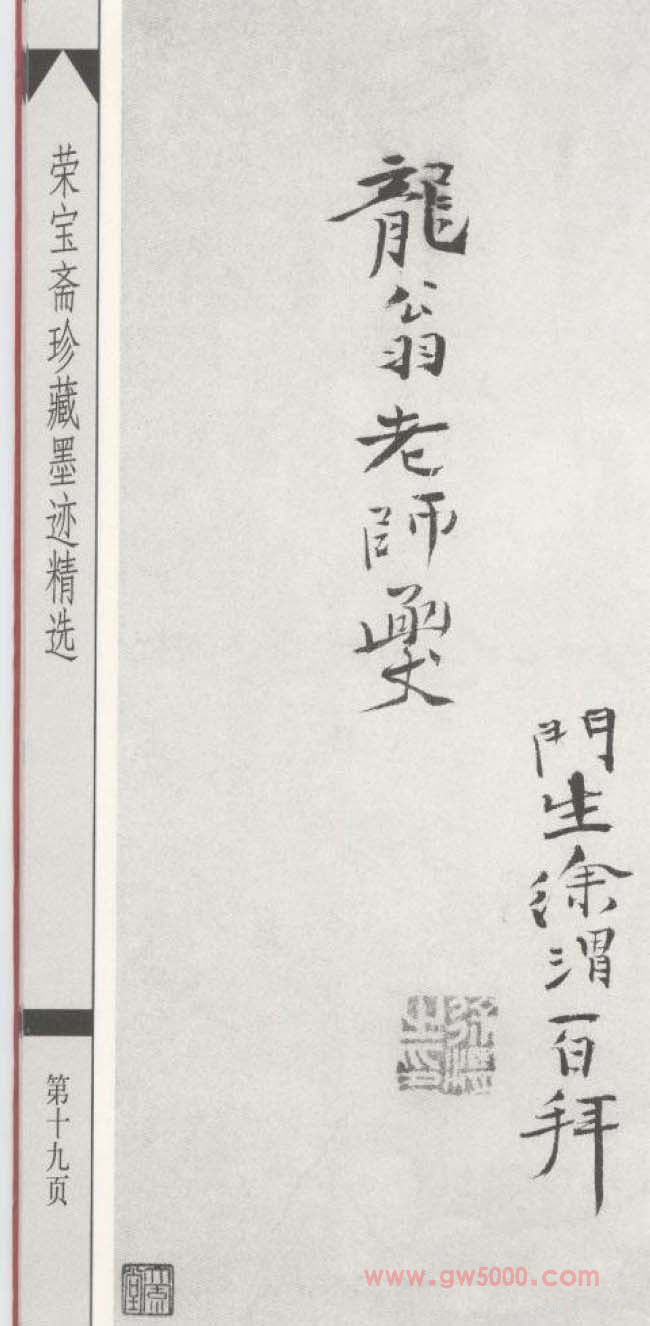 門生徐渭百拜
龍翁老師函丈
荣宝斋珍藏墨迹精选
第十九页
www.gw5000.com